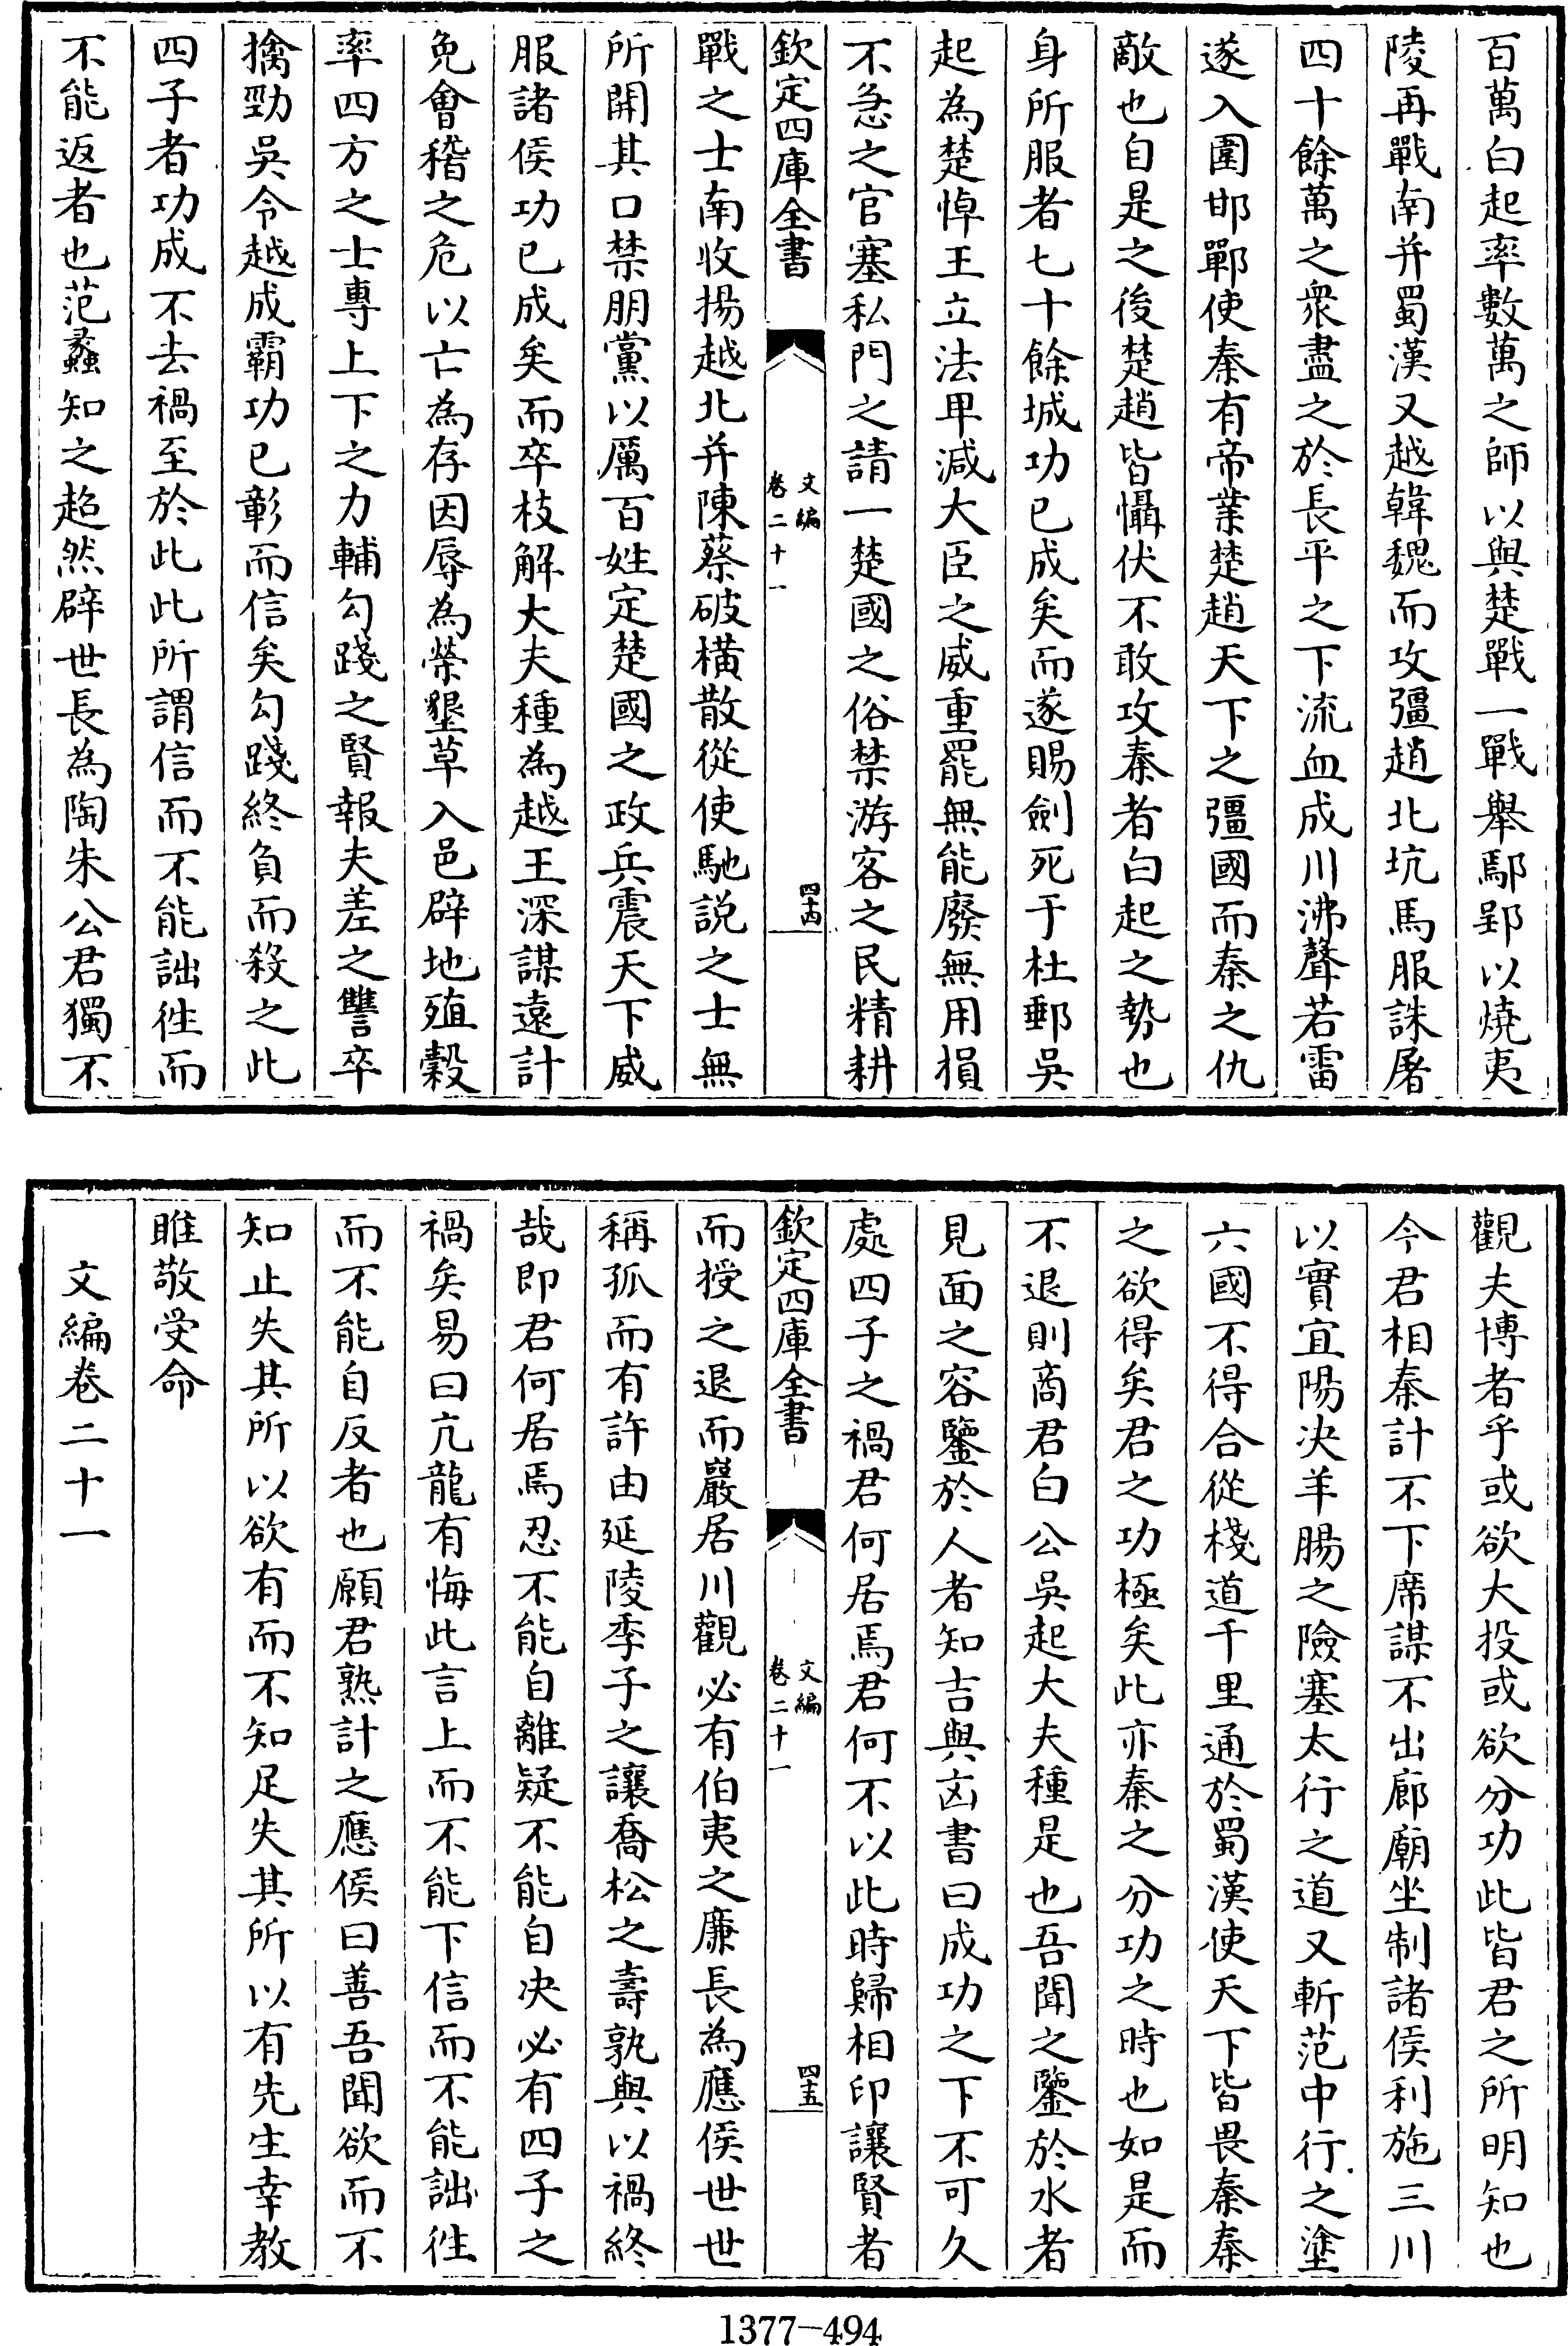 百萬白起率數萬之師以與楚戰一戰舉鄢郢以燒夷
陵再戰南并蜀漢又越韓魏而攻彊趙北坑馬服誅屠
四十餘萬之衆盡之於長平之下流血成川沸聲若雷
遂入圍邯鄲使秦有帝業楚趙天下之彊國而秦之仇
敵也自是之後楚趙皆懾伏不敢攻秦者白起之勢也
身所服者七十餘城功已成矣而遂賜劍死于杜郵吳
起為楚悼王立法卑減大臣之威重罷無能廢無用損
不急之官塞私門之請一楚國之俗禁游客之民精耕
欽定四庫全書 文編卷二十一 四十四
戰之士南收揚越北并陳蔡破橫散從使馳説之士無
所開其口禁朋黨以厲百姓定楚國之政兵震天下威
服諸侯功已成矣而卒枝解大夫種為越王深謀遠計
免會稽之危以亡為存因辱為榮墾草入邑辟地殖穀
率四方之士專上下之力輔勾踐之賢報夫差之讐卒
擒勁吳令越成霸功已彰而信矣勾踐終負而殺之此
四子者功成不去禍至於此此所謂信而不能詘徃而
不能返者也范蠡知之超然辟世長為陶朱公君獨不
觀夫博者乎或欲大投或欲分功此皆君之所明知也
今君相秦計不下席謀不出廊廟坐制諸侯利施三川
以實宜陽决羊腸之險塞太行之道又斬范中行之塗
六國不得合從棧道千里通於蜀漢使天下皆畏秦秦
之欲得矣君之功極矣此亦秦之分功之時也如是而
不退則商君白公吳起大夫種是也吾聞之鑒於水者
見面之容鑒於人者知吉與凶書曰成功之下不可久
處四子之禍君何居焉君何不以此時歸相印讓賢者
欽定四庫全書 文編卷二十一 四十五
而授之退而巖居川觀必有伯夷之廉長為應侯世世
稱孤而有許由延陵季子之讓喬松之壽孰與以禍終
哉即君何居焉忍不能自離疑不能自决必有四子之
禍矣易曰亢龍有悔此言上而不能下信而不能詘徃
而不能自反者也願君熟計之應侯曰善吾聞欲而不
知止失其所以欲有而不知足失其所以有先生幸教
睢敬受命
文編卷二十一
1377-494